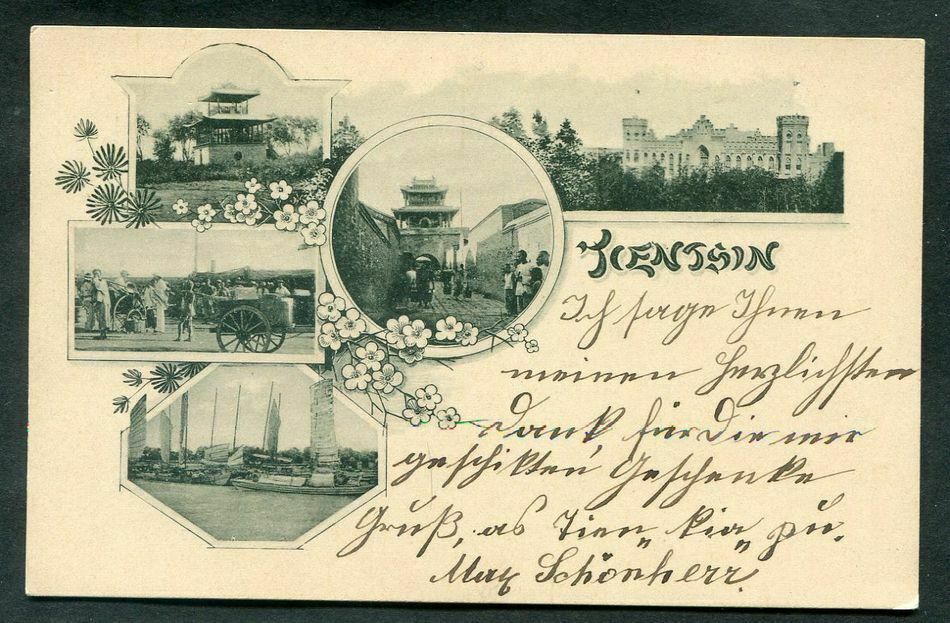 TIENTSIN
Ich sage Ihnen
meinen herzlichsten
Dank für die mir
geschikten Geschenke
Gruß, as Tien „ kia „ pu.
Max Schönherr.